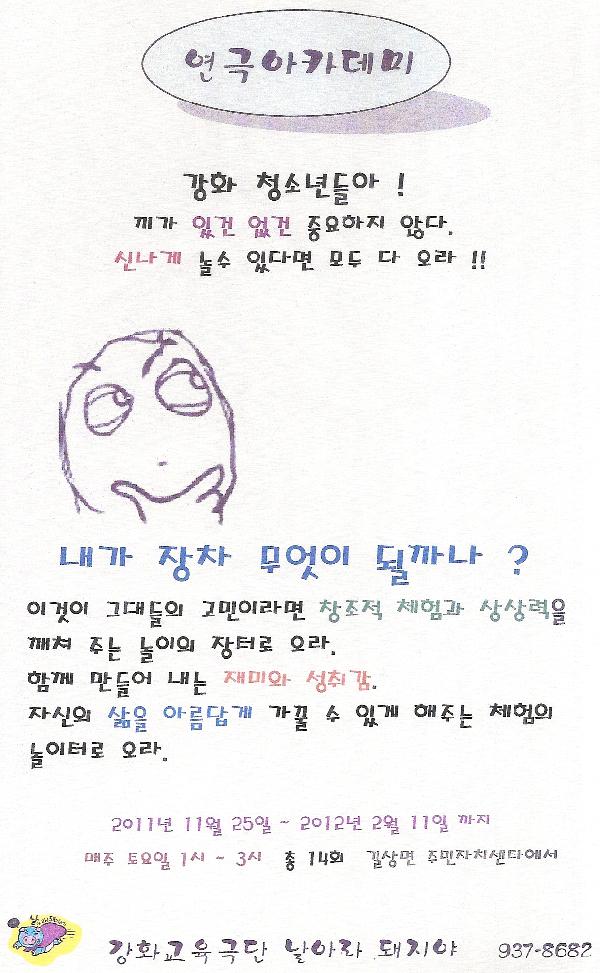 연극아카데미
강화 청소년들아 !
끼가 있건 없건 중요하지 않다.
신나게 놀수 있다면 모두 다 오라 !!
내가 장차 무엇이 될까나 ?
이것이 그대들의 고민이라면 창조적 체험과 상상력을
깨쳐 주는 놀이의 장터로 오라.
함께 만들어 내는 재미와 성취감.
자신의 삶을 아름답게 가꿀 수 있게 해주는 체험의
놀이터로 오라.
2011년 11월 25일 ~ 2012년 2월 11일 까지
매주 토요일 1시 ~ 3시 총 14회 길상면 주민자치센타에서
강화교육극단 날아라 돼지야 937-8682